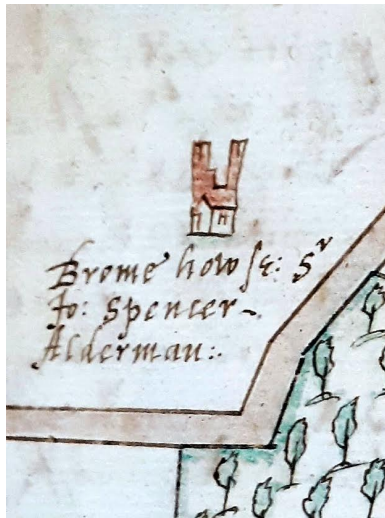 Brome howse: Sr
Jo: Spencer
Alderman: